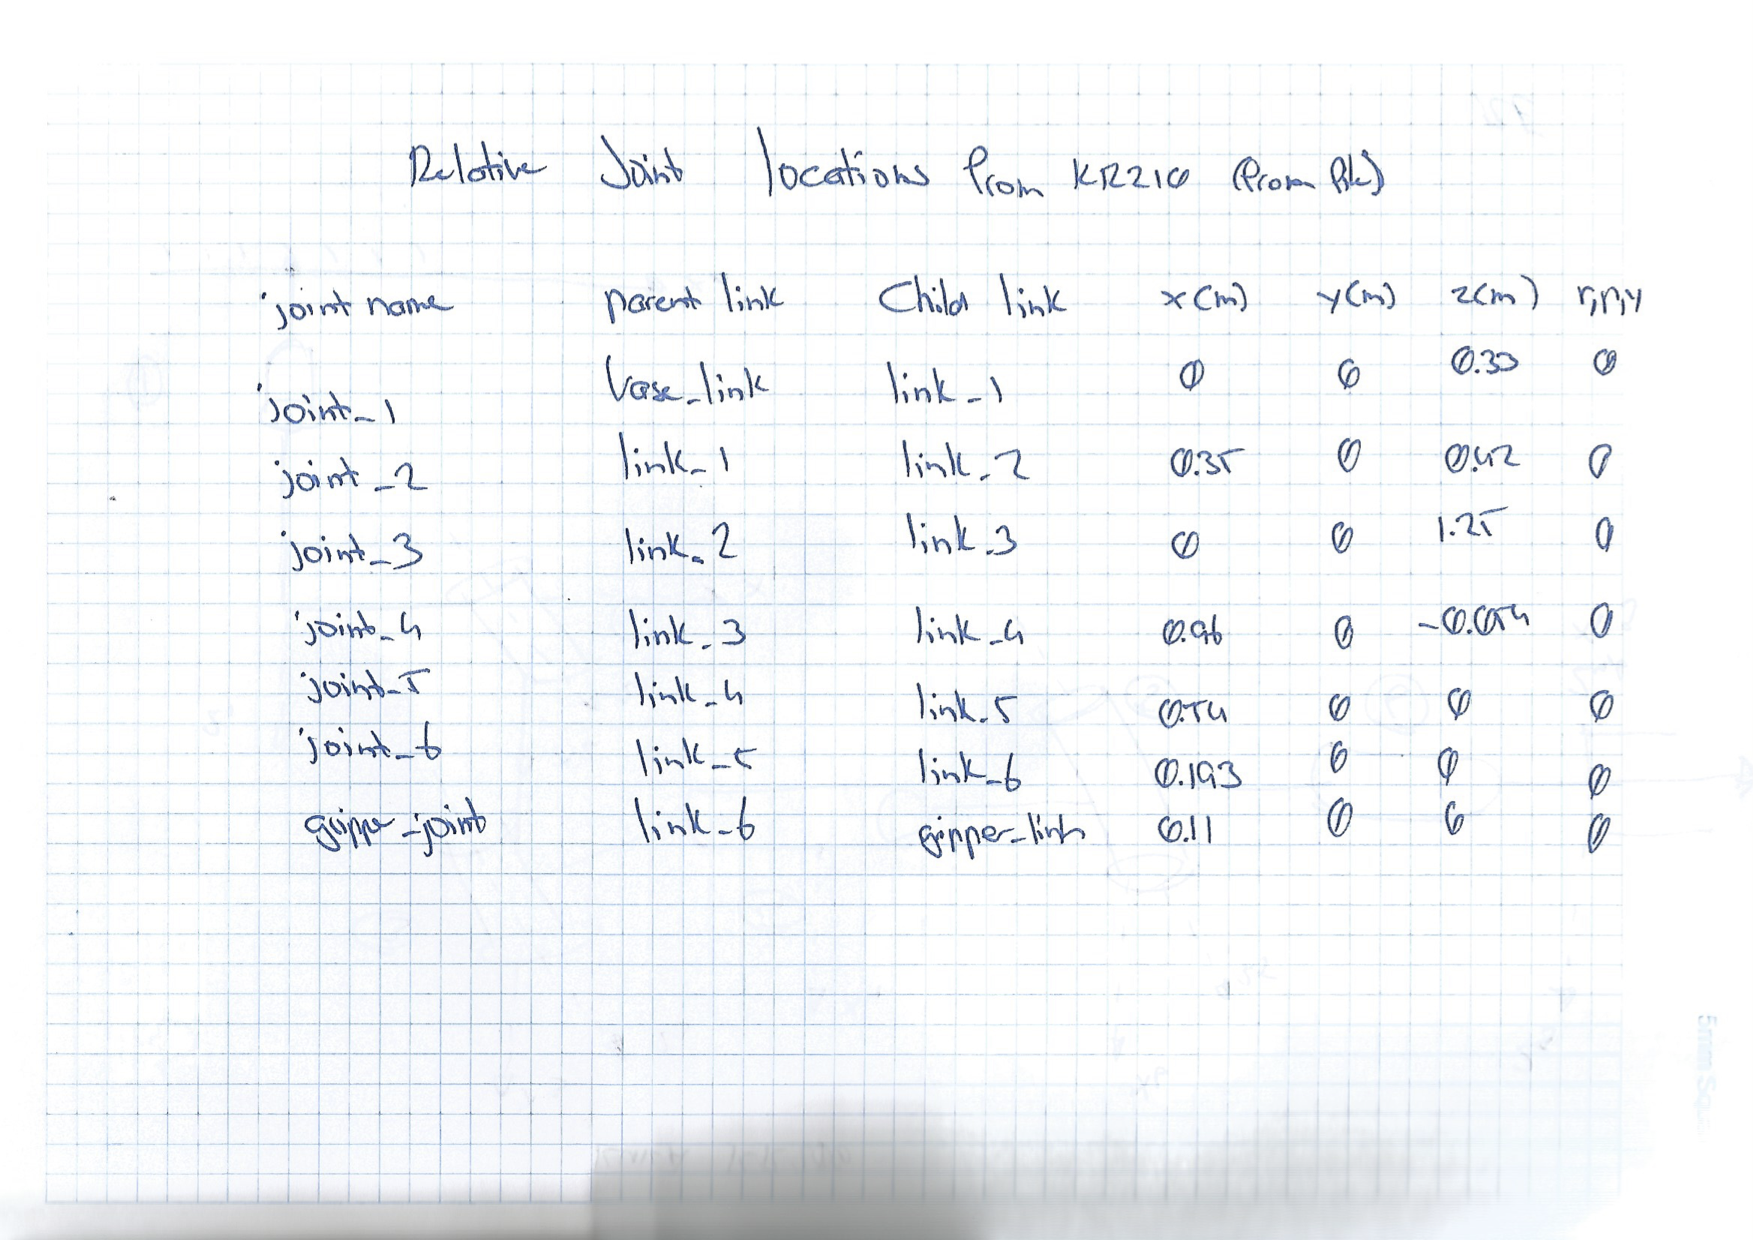 Relative Joint locations from KR210 (from file)
joint name parent link Child link x(m) y(m) z(m) r,p,y
joint_1 base_link link_1 0 0 0.33 0
joint_2 link_1 link_2 0.35 0 0.42 0
joint_3 link_2 link_3 0 0 1.25 0
joint_4 link_3 link_4 0.96 0 -0.054 0
joint_5 link_4 link_5 0.54 0 0 0
joint_6 link_5 link_6 0.193 0 0 0
gripper_joint link_6 gripper_link 0.11 0 0 0